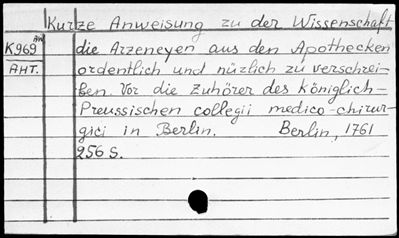 Kurze Anweisung zu der Wissenschaft
AN
K969
die Arzeneyen aus den Apothecken
AHT.
ordentlich und nüzlich zu verschrei-
ben. Vor die Zuhörer des Königlich-
Preussischen collegii medico-chirur-
gici in Berlin. Berlin, 1761
256 S.